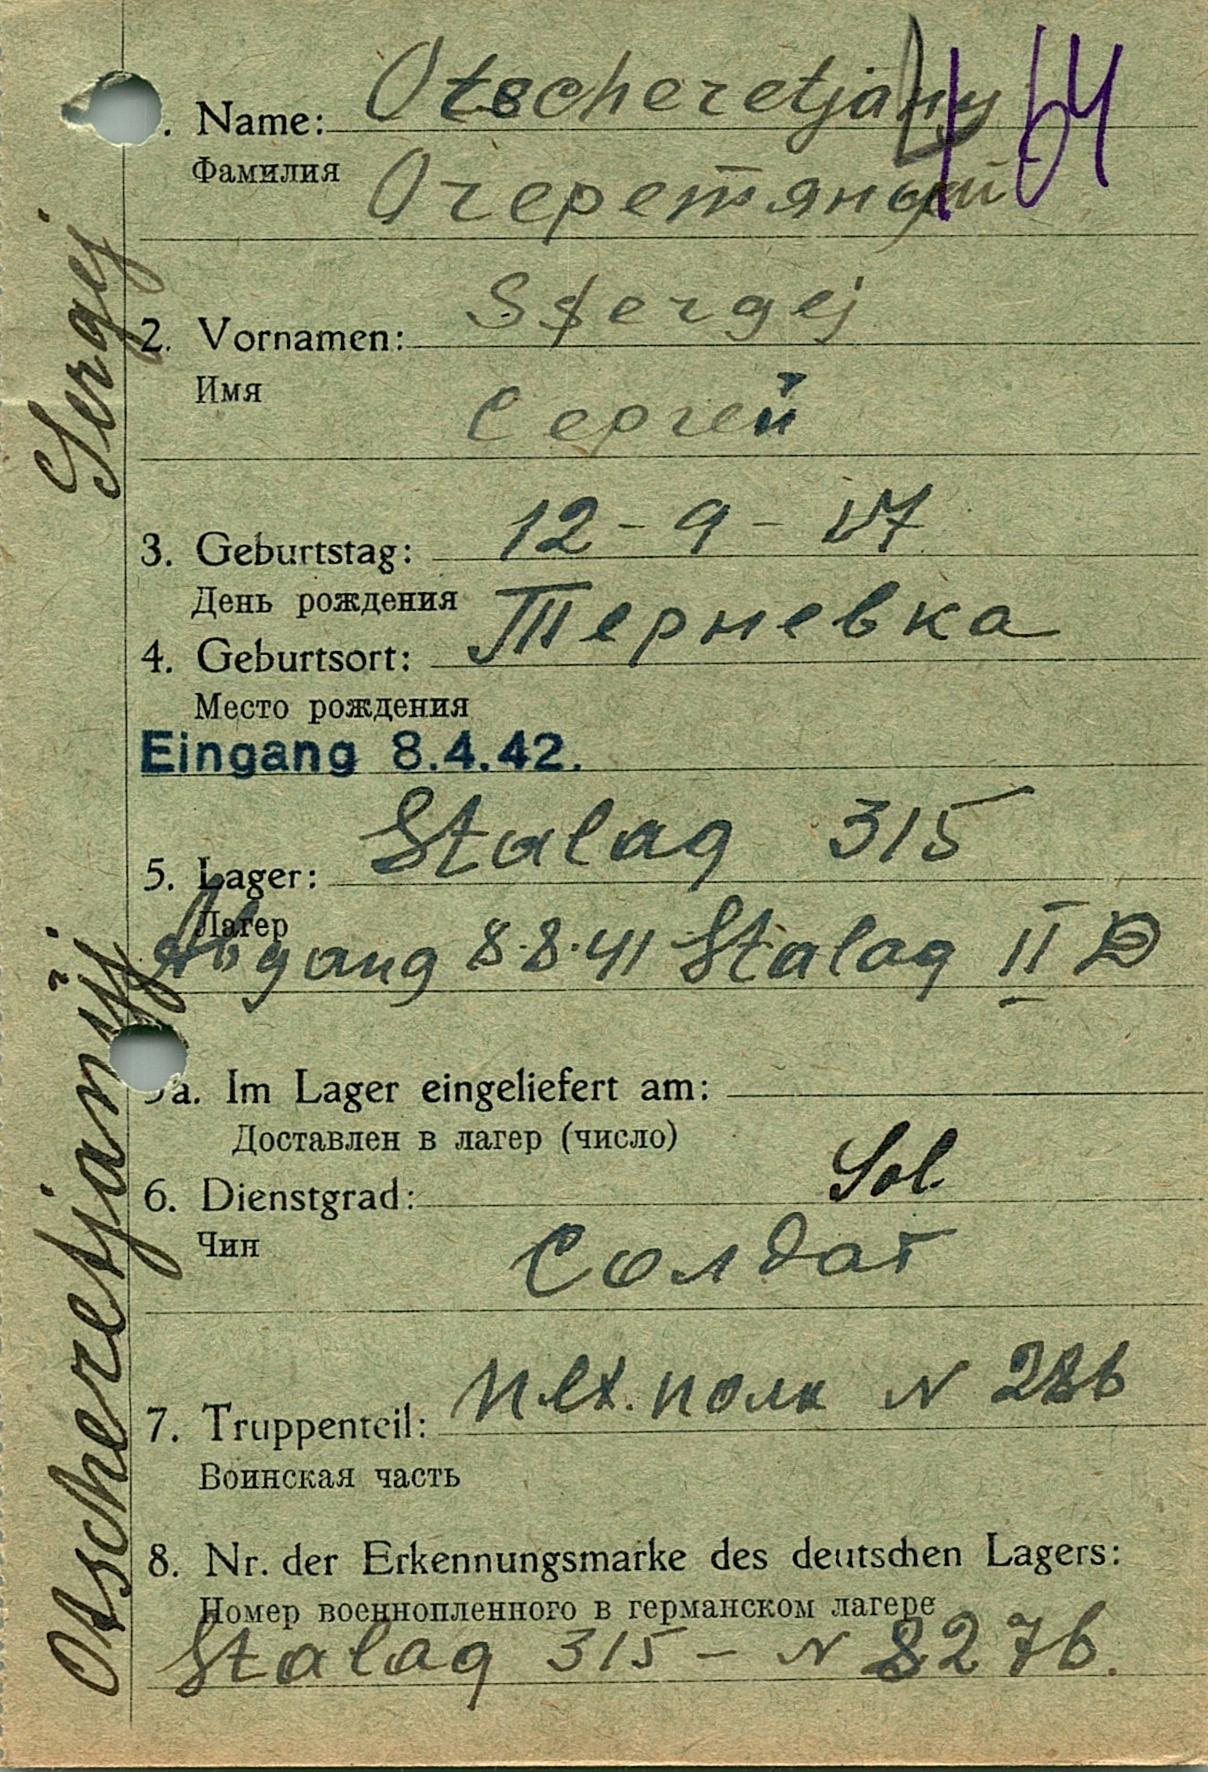 . Name: Otscheretjany
Фамилия Очеретяный
464
2. Vornamen: Ssergej
Имя Сергей
3. Geburtstag: 12-9-17
День рождения
4. Geburtsort: Терневка
Место рождения
Eingang 8.4.42.
5. Lager: Stalag 315
Лагер
Abgang 8.8.41 Stalag II D
a. Im Lager eingeliefert am:
Доставлен в лагер (число)
6. Dienstgrad: Sol.
Чин Солдат
7. Truppenteil: полк N 286
Воинская часть
8. Nr. der Erkennungsmarke des deutschen Lagers:
Номер военнопленного в германском лагере
Stalag 315 - N 8276.
Otscheretjanyj Sergej